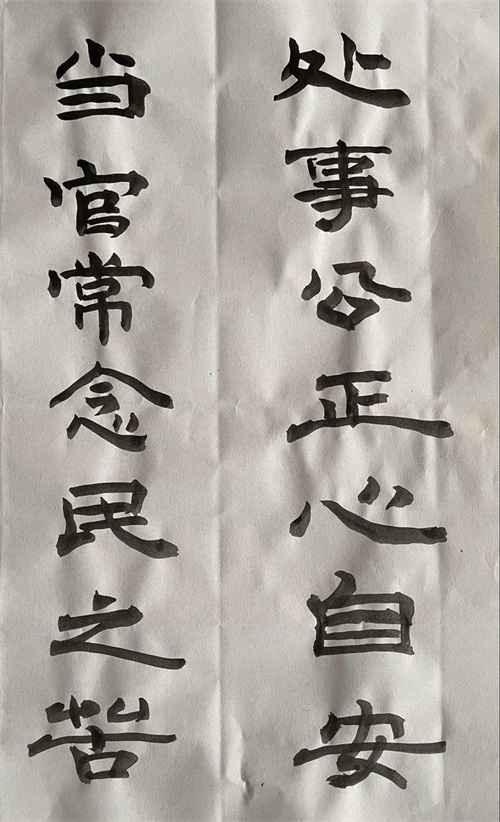 处事公正心自安
当官常念民之苦